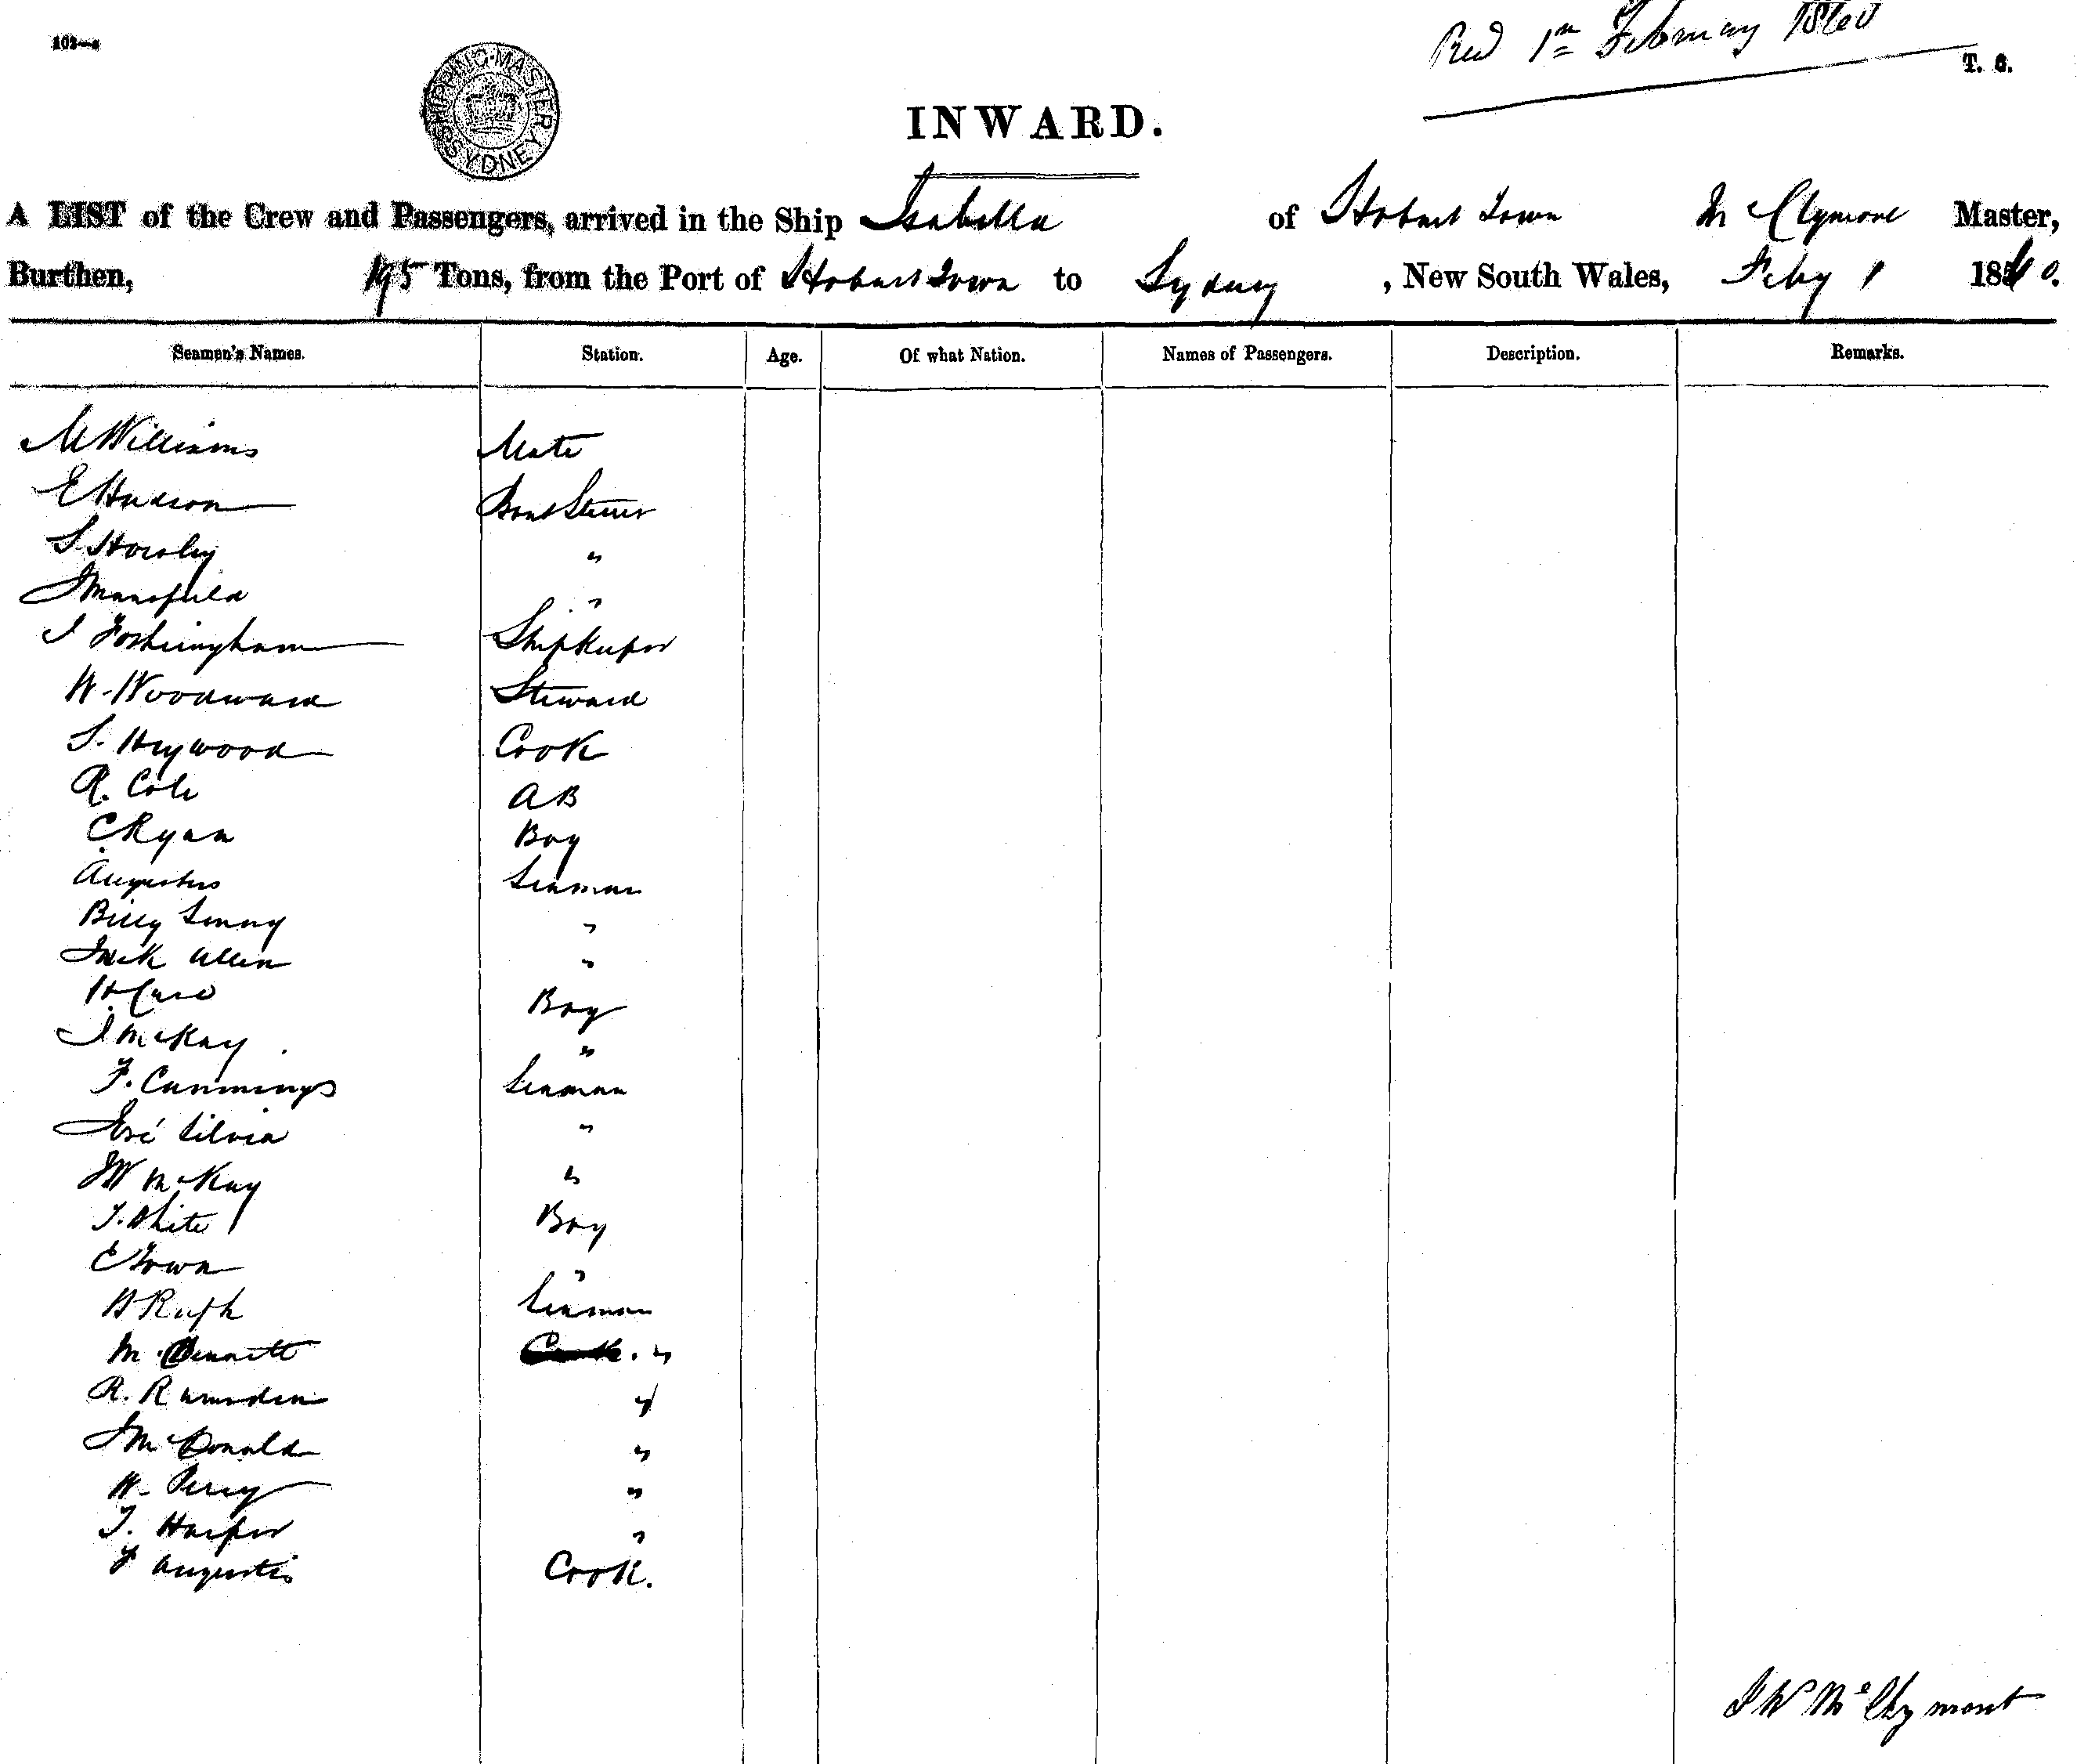 103—c
Recd 1st February 1860
T. G.
SHIPPING MASTER SYDNEY
INWARD.
A LIST of the Crew and Passengers, arrived in the Ship Isabella of Hobart Town McClymont Master,
Burthen, 195 Tons, from the Port of Hobart Town to Sydney, New South Wales, Feby 1 1860.
Seamen's Names. Station. Age. Of what Nation. Names of Passengers. Description. Remarks.
M Williams Mate
E Hudson Boat Steerer
S Horsley "
J Mansfield "
J Fothringham Shipkeeper
W. Woodward Steward
S. Heywood Cook
R. Cole AB
C Ryan Boy
Augustus Seaman
Billy "
Jack Allen "
H. Boy
J McKay "
F. Cummings Seaman
José Silvia "
J W McKay "
T. White Boy
E Town "
Seaman
M. Bennett "
R. Ramsden "
J McDonald "
W. Percy "
T. Harper "
F Augustis Cook.
J W McClymont